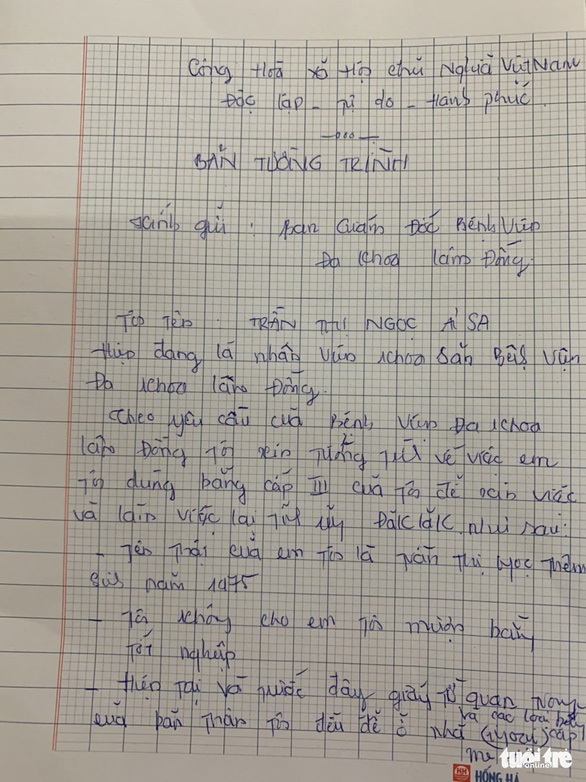 Cộng Hoà xã Hội chủ Nghĩa Việt Nam
Độc lập - Tự do - Hạnh phúc
BẢN TƯỜNG TRÌNH
Kính gửi : Ban Giám Đốc Bệnh Viện
Đa Khoa Lâm Đồng.
Tôi tên : TRẦN THỊ NGỌC ÁI SA
Hiện đang là nhân viên khoa Sản Bệnh Viện
Đa Khoa Lâm Đồng.
Theo yêu cầu của Bệnh Viện Đa Khoa
Lâm Đồng Tôi xin Tường Trình về việc em
Tôi dùng bằng cấp III của Tôi để xin việc
và làm việc tại Tỉnh ủy ĐắkLắk như sau:
- Tên Thật của em Tôi là Trần Thị Ngọc Thêm
Sinh năm 1975
- Tôi không cho em Tôi mượn bằng
Tốt nghiệp
- Hiện Tại và Trước đây giấy Tờ quan Trọng
và các loại bằng
của bản Thân Tôi đều để ở nhà
mẹ
tuổi trẻ
online
HỒNG HÀ